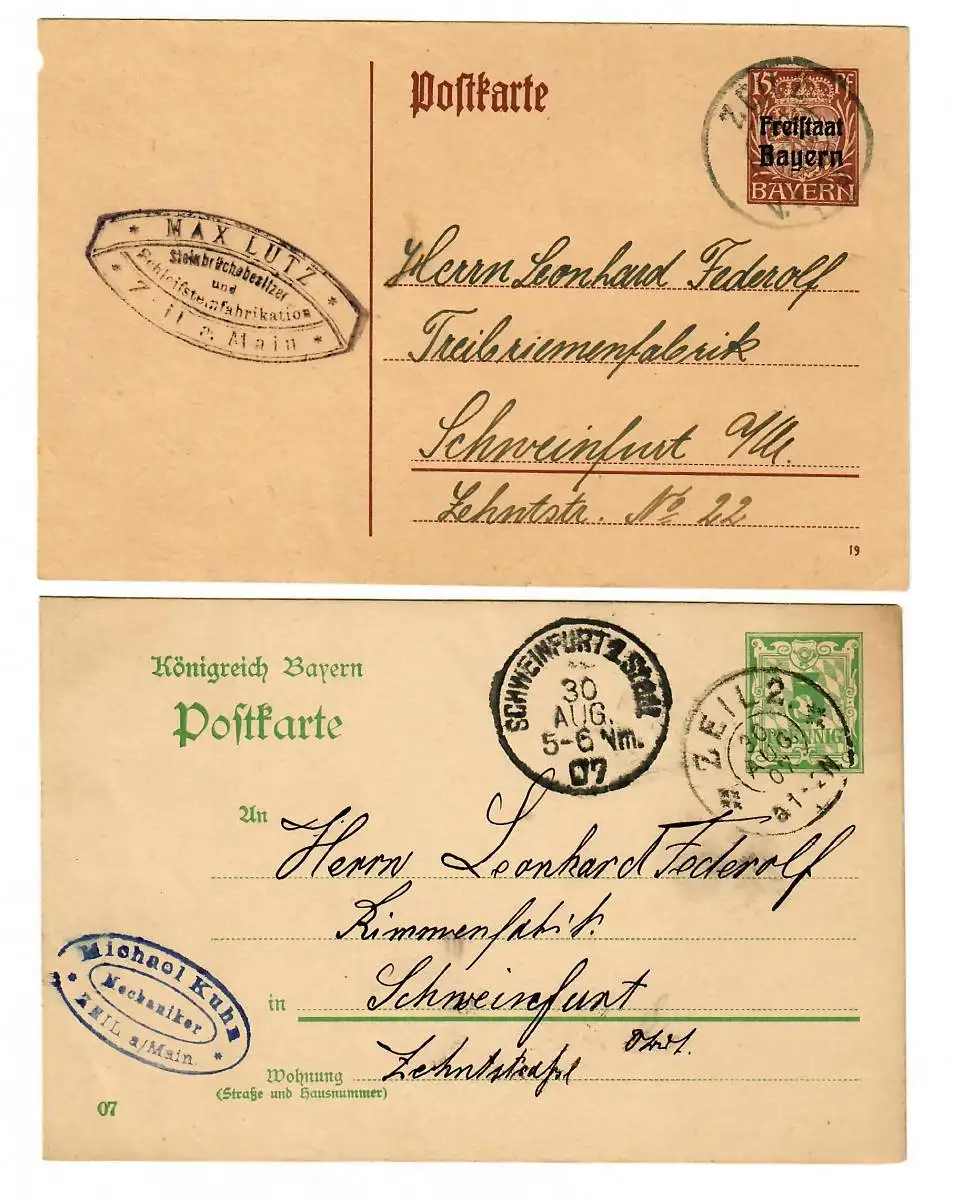 Postkarte
15 Pf
Freistaat
Bayern
BAYERN
* MAX LUTZ *
Steinbruchsbesitzer
und
Schleifsteinfabrikation
* Zeil a. Main *
Herrn Leonhard Federolf
Treibriemenfabrik
Schweinfurt a/M.
Zehntstr. No 22
19
Königreich Bayern
Postkarte
SCHWEINFURT
30
AUG.
5-6 Nm.
07
ZEIL 2
30
AUG
07
1-2N
PFENNIG
An
Herrn Leonhard Federolf
Rimmenfabrik.
in
Schweinfurt
Wohnung
Zehntstraße
(Straße und Hausnummer)
Michael Kuhn
Mechaniker
* ZEIL a/Main. *
07